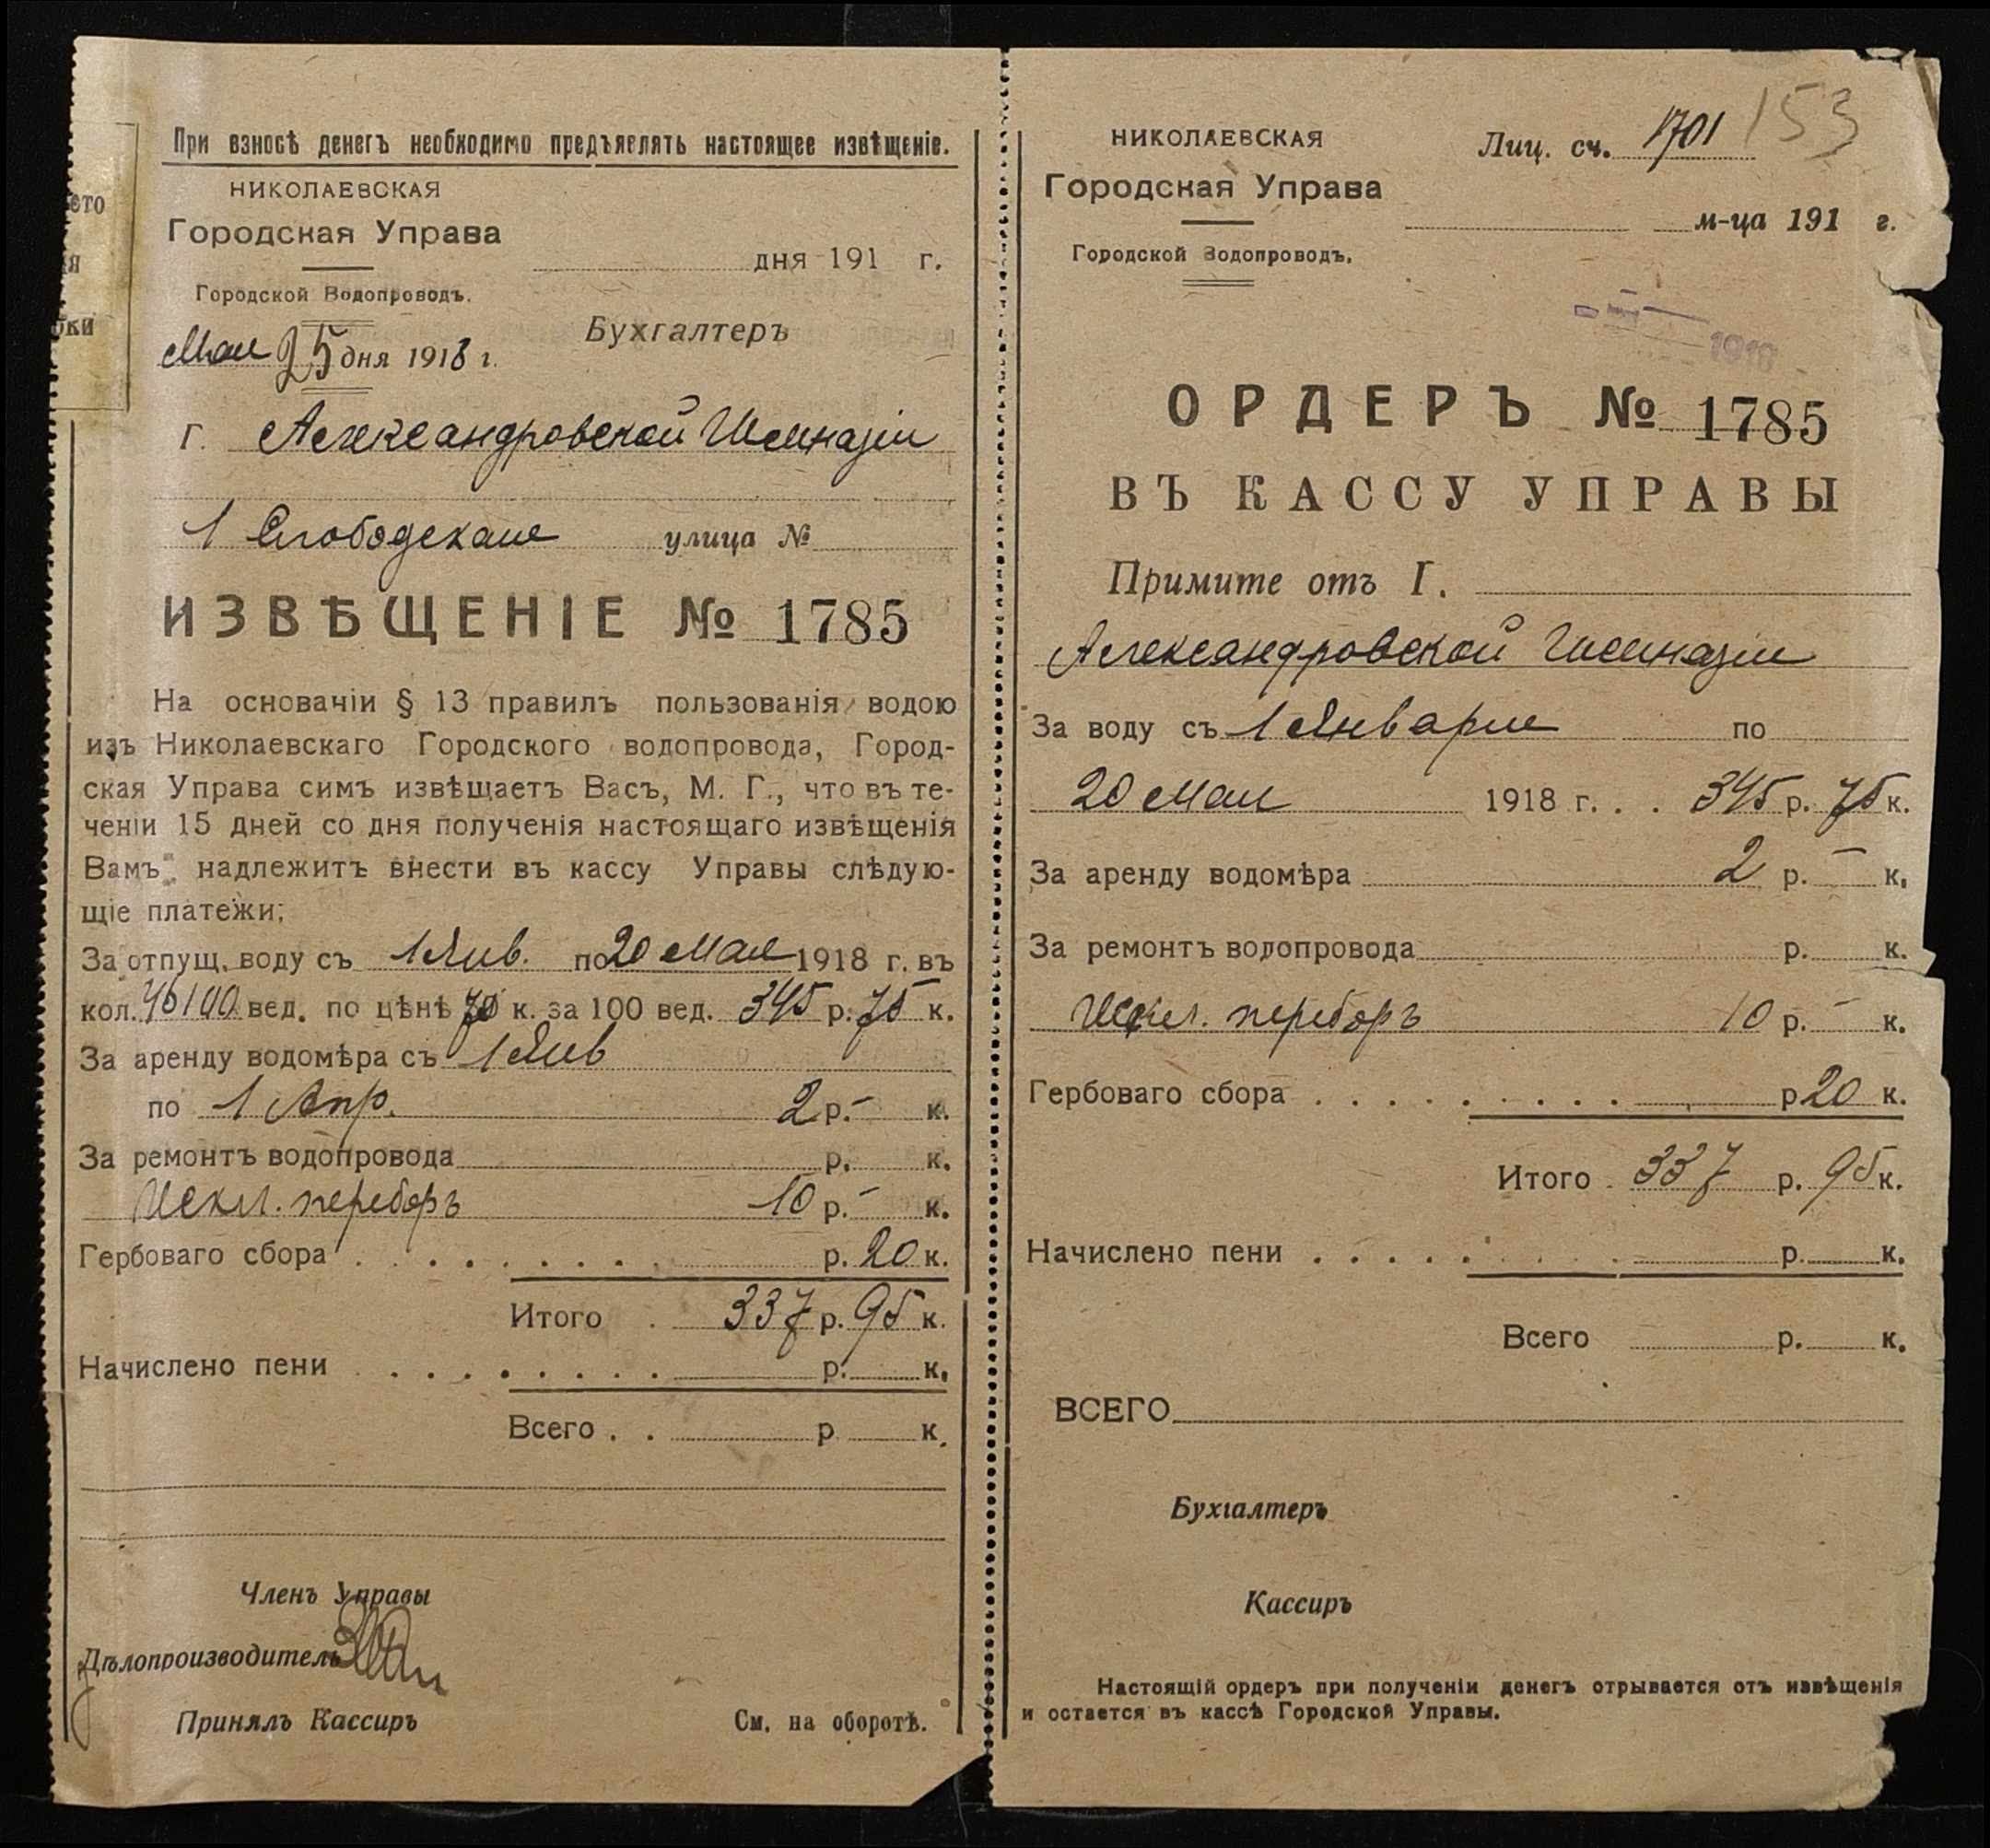 При взносѣ денегъ необходимо предъявлять настоящее извѣщеніе.
НИКОЛАЕВСКАЯ
Городская Управа
дня 191 г.
Городской Водопроводъ.
Бухгалтеръ
Мая 25 дня 1918 г.
г. Александровской Гимназіи
1 Слободская улица №
ИЗВѢЩЕНІЕ № 1785
На основачіи § 13 правилъ пользованія водою
изъ Николаевскаго Городского водопровода, Город-
ская Управа симъ извѣщаетъ Васъ, М. Г., что въ те-
ченіи 15 дней со дня полученія настоящаго извѣщенія
Вамъ надлежитъ внести въ кассу Управы слѣдую-
щіе платежи;
За отпущ. воду съ 1 Янв. по 20 Мая 1918 г. въ
кол. вед. по цѣнѣ к. за 100 вед. 345 р. 75 к.
За аренду водомѣра съ 1 Янв
по 1 Апр. 2 р. – к.
За ремонтъ водопровода р. к.
Искл. переборъ 10 р. – к.
Гербоваго сбора р. 20 к.
Итого 337 р. 95 к.
Начислено пени р. к.
Всего р. к.
Членъ Управы
Дѣлопроизводитель
Принялъ Кассиръ
См. на оборотѣ.
НИКОЛАЕВСКАЯ
Лиц. сч. 1701 153
Городская Управа
м-ца 191 г.
Городской Водопроводъ.
1918
ОРДЕРЪ № 1785
ВЪ КАССУ УПРАВЫ
Примите отъ Г.
Александровской Гимназіи
За воду съ 1 Января по
20 Мая 1918 г. 345 р. 75 к.
За аренду водомѣра 2 р. – к.
За ремонтъ водопровода р. к.
Искл. переборъ 10 р. – к.
Гербоваго сбора р 20 к.
Итого 337 р. 95 к.
Начислено пени р. к.
Всего р. к.
ВСЕГО
Бухгалтеръ
Кассиръ
Настоящій ордеръ при полученіи денегъ отрывается отъ извѣщенія
и остается въ кассѣ Городской Управы.